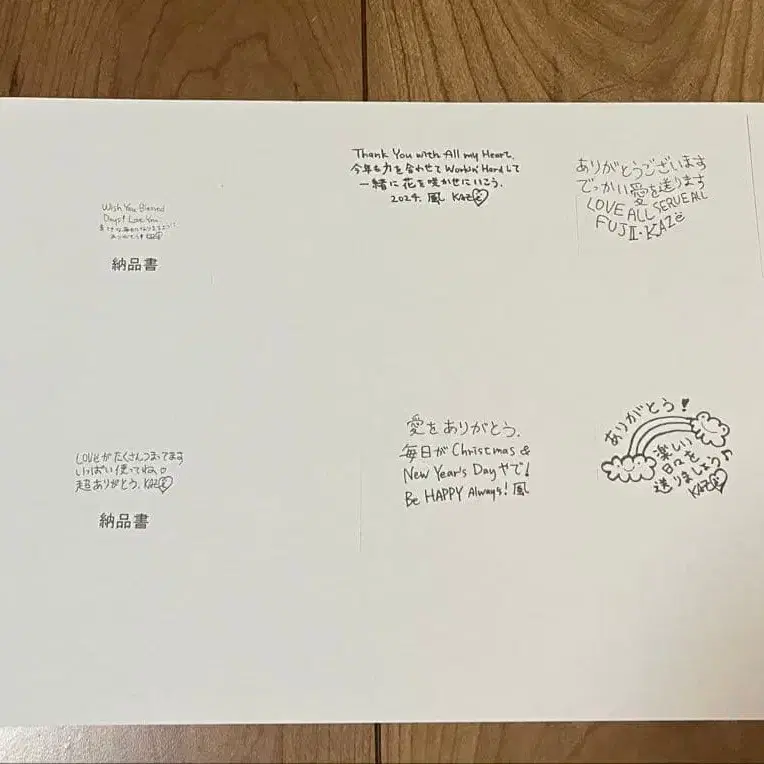 Wish You Blessed
Days! Love You.
ありがとう KAZE
納品書
Thank You with All my Heart,
今年も力を合わせて Workin' Hardして
一緒に花を咲かせにいこう.
2024. 風 KAZE
ありがとうございます
でっかい愛を送ります
LOVE ALL SERVE ALL
FUJII・KAZE
LOVEがたくさんつまってます
いっぱい使ってね。
超ありがとう. KAZE
納品書
愛をありがとう.
毎日が Christmas &
New Year's Day やで!
Be HAPPY Always! 風
ありがとう!
楽しい
日々を
送りましょう♪
KAZE